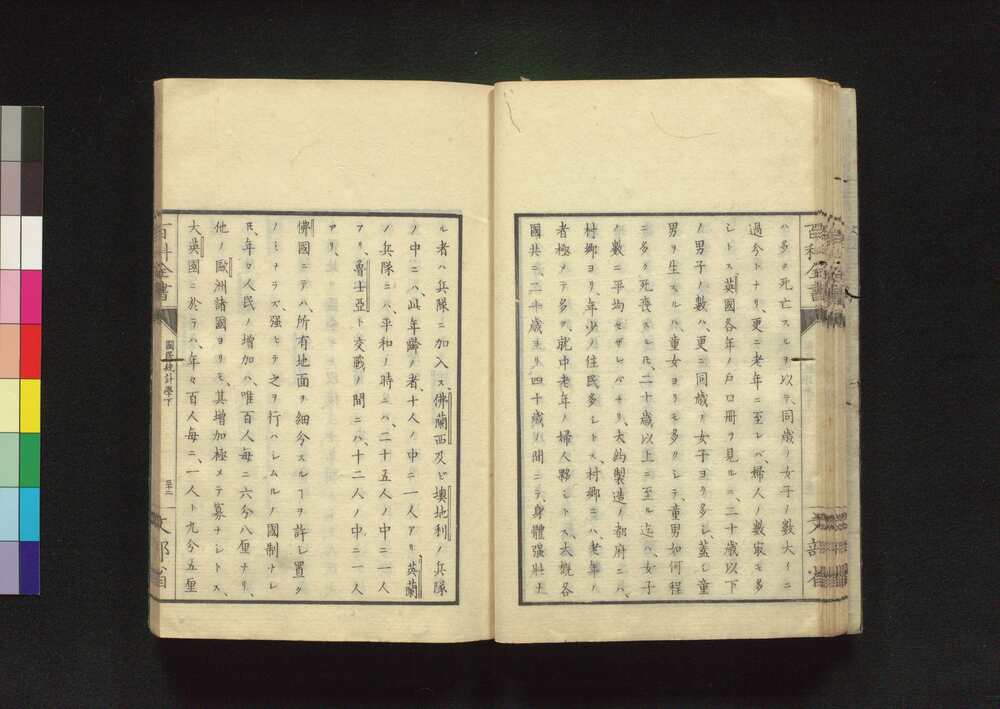 ハ多ク死亡スルヲ以テ、同歳ノ女子ノ數大イニ
過分トナリ、更ニ老年ニ至レバ、婦人ノ數寂モ多
シトス、英國各年ノ戸口冊ヲ見ルニ、二十歳以下
ノ男子ノ數ハ、更ニ同歳ノ女子ヨリ多シ、蓋シ童
男ヲ生スルハ、童女ヨリモ多クシテ、童男如何程
ニ多ク死喪スレ𪜈、二十歳以上ニ至ル迄ハ、女子
ノ數ニ平均セザレバナリ、大約製造ノ都府ニハ、
村郷ヨリ、年少ノ住民多シトス、村郷ニハ、老年ノ
者極メテ多ク、就中老年ノ婦人夥シトス、大概各
國共ニ二十歳ヨリ四十歳ノ間ニテ、身體强壯ナ
百科全書
文部省
ル者ハ兵隊ニ加入ス、佛蘭西及ビ墺地利ノ兵隊
ノ中ニハ、此年齡ノ者、十人ノ中ニ一人アリ、英蘭
ノ兵隊ニハ、平和ノ時ニハ、二十五人ノ中ニ一人
アリ、魯士亞ト交戰ノ間ニハ、十二人ノ中ニ一人
アリ、
佛國ニテハ、所有地面ヲ細分スルヿヲ許シ置ク
ノミナラズ、强ヒテ之ヲ行ハシムルノ國制ナレ
𪜈、年々人民ノ增加ハ、唯百人每ニ六分八厘ナリ、
他ノ歐洲諸國ヨリモ、其增加極メテ寡ナシトス、
大英國ニ於テハ、年々百人每ニ、一人ト九分五厘
百科全書
國民統計學下
文部省